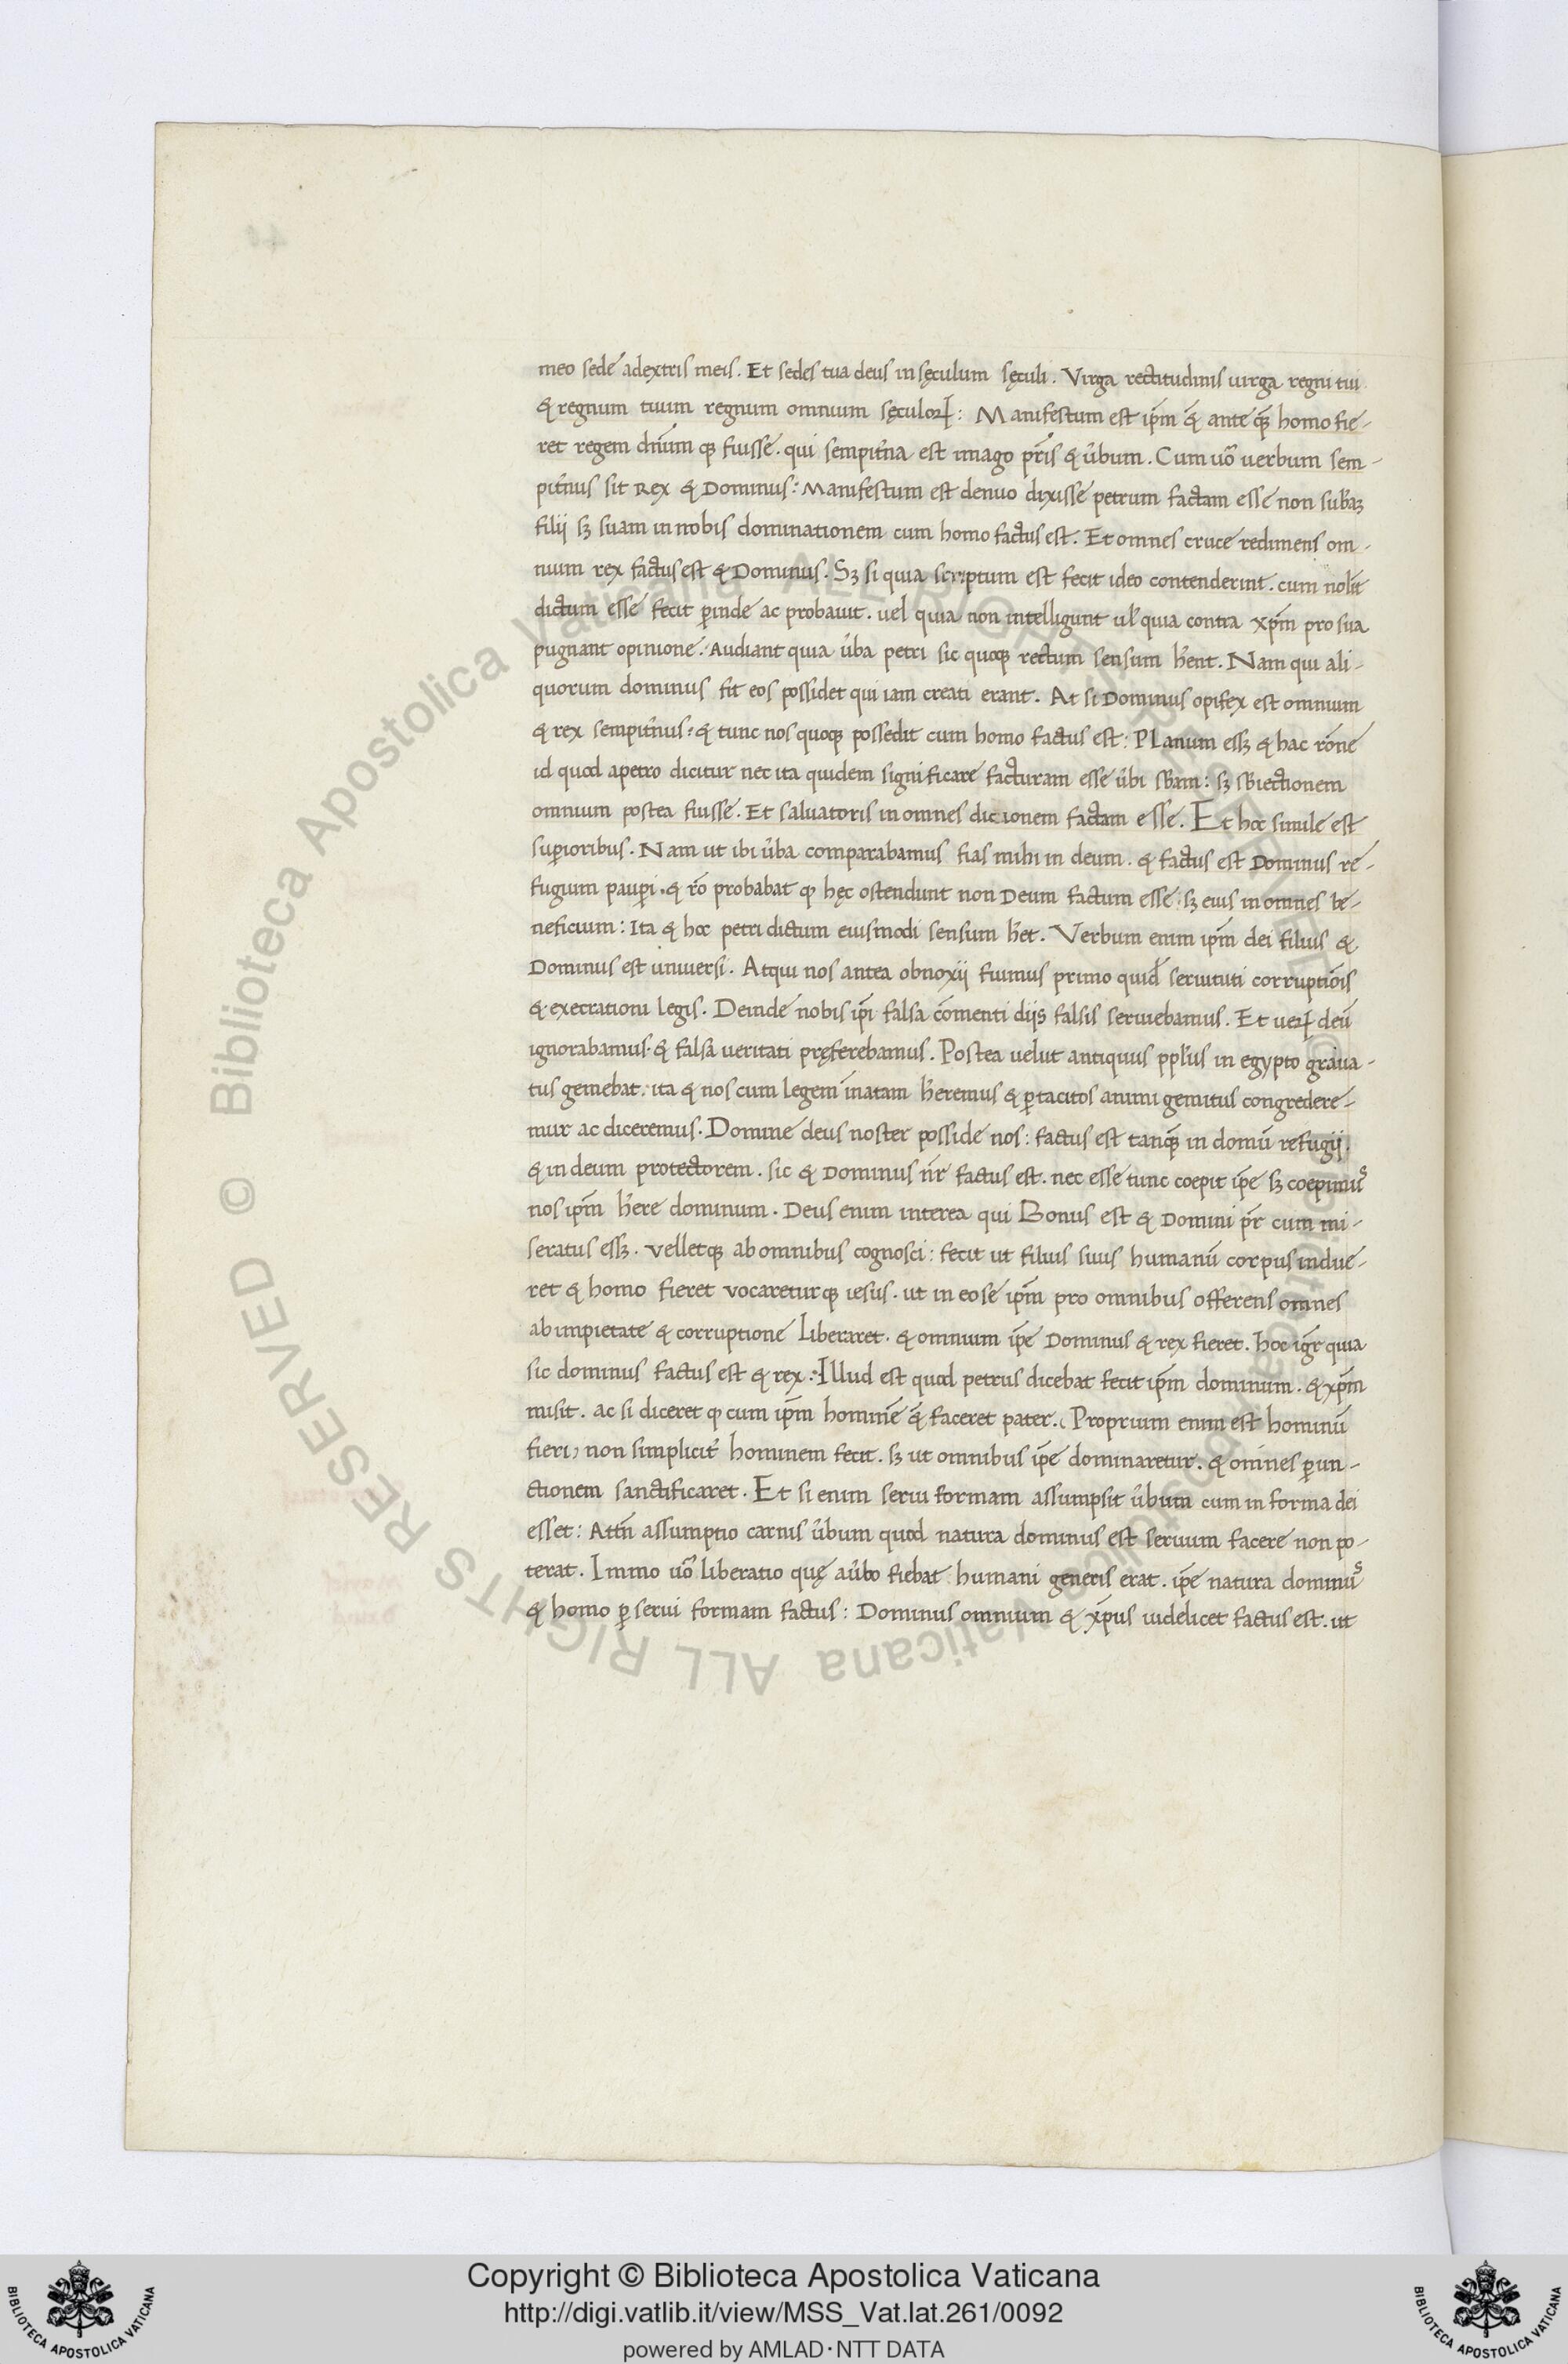 meo sede adextris meis. Et sedes tua deus in sęculum sęculi. Virga rectitudinis uirga regni tui
& regnum tuum regnum omnium sęculoꝝ: Manifestum est ip̄m & ante q̃ homo fie-
ret regem dn̄um qꝫ fuisse. qui sempit̉na est imago pr̄is & u̓bum. Cum uo᷑ uerbum sem-
pit̉nus sit Rex & Dominus: Manifestum est denuo dixisse petrum factam esse non sub᷑aꝫ
filii sꝫ suam in nobis dominationem cum homo factus est. Et omnes cruce redimens om-
nium rex factus est & Dominus. Sꝫ si quia scriptum est fecit ideo contenderint. cum nolīt
dictum esse fecit ꝑinde ac probauit. uel quia non intelligunt ul̓ quia contra xp̄m pro sua
pugnant opinione. Audiant quia u̓ba petri sic quoqꝫ rectum sensum h̓ent. Nam qui ali-
quorum dominus fit eos possidet qui iam creati erant. At si Dominus opifex est omnium
& rex sempit̉nus: & tunc nos quoqꝫ possedit cum homo factus est: PLanum essꝫ & hac rōne
id quod apetro dicitur nec ita quidem significare facturam esse u̓bi sb̄am: sꝫ sb̄iectionem
omnium postea fuisse. Et saluatoris in omnes dicionem factam esse. Et hoc simile est
suꝑioribus. Nam ut ibi u̓ba comparabamus fias mihi in deum. & factus est Dominus re-
fugium pauꝑi. & rō probabat ꝙ hęc ostendunt non Deum factum esse: sꝫ eius in omnes be-
neficium: Ita & hoc petri dictum eiusmodi sensum h̓et. Verbum enim ip̄m dei filius &
Dominus est uniuersi. Atqui nos antea obnoxii fuimus primo quid̄ seruituti corruptiōis
& execrationi legis. Deinde nobis ip̄i falsa cōmenti diis falsis seruiebamus. Et ueꝝ deū
ignorabamus. & falsa ueritati pręferebamus. Postea uelut antiquus ppl̓us in egypto graua-
tus gemebat. ita & nos cum legem īnatam h̓eremus & ꝑ tacitos animi gemitus congredere-
mur ac diceremus. Domine deus noster posside nos: factus est tanq̃ in domū refugii.
& in deum protectorem. sic & Dominus nr̄ factus est. nec esse tunc coepit ip̄e sꝫ coepimuꝰ
nos ip̄m h̓ere dominum. Deus enim interea qui Bonus est & Domini pr̄ cum mi-
seratus essꝫ. velletqꝫ ab omnibus cognosci: fecit ut filius suus humanū corpus indue-
ret & homo fieret vocareturqꝫ iesus. ut in eo se ip̄m pro omnibus offerens omnes
ab impietate & corruptione Liberaret. & omnium ip̄e Dominus & rex fieret. hoc igr̄ quia
sic dominus factus est & rex: Illud est quod petrus dicebat fecit ip̄m dominum. & xp̄m
misit. ac si diceret ꝙ cum ip̄m hominē & faceret pater. (Proprium enim est hominū
fieri) non simplicit̉ hominem fecit. sꝫ ut omnibus ip̄e dominaretur. & omnes ꝑ un-
ctionem sanctificaret. Et si enim serui formam assumpsit u̓bum cum in forma dei
esset: Attn̄ assumptio carnis u̓bum quod natura dominus est seruum facere non po-
terat. Immo uo᷑ liberatio quę au̓bo fiebat humani generis erat. ip̄e natura dominuꝰ
& homo ꝑ serui formam factus: Dominus omnium & xp̄us uidelicet factus est. ut
Copyright © Biblioteca Apostolica Vaticana
http://digi.vatlib.it/view/MSS_Vat.lat.261/0092
powered by AMLAD·NTT DATA
BIBLIOTECA APOSTOLICA VATICANA
BIBLIOTECA APOSTOLICA VATICANA
© Biblioteca Apostolica Vaticana ALL RIGHTS RESERVED
© Biblioteca Apostolica Vaticana ALL RIGHTS RESERVED